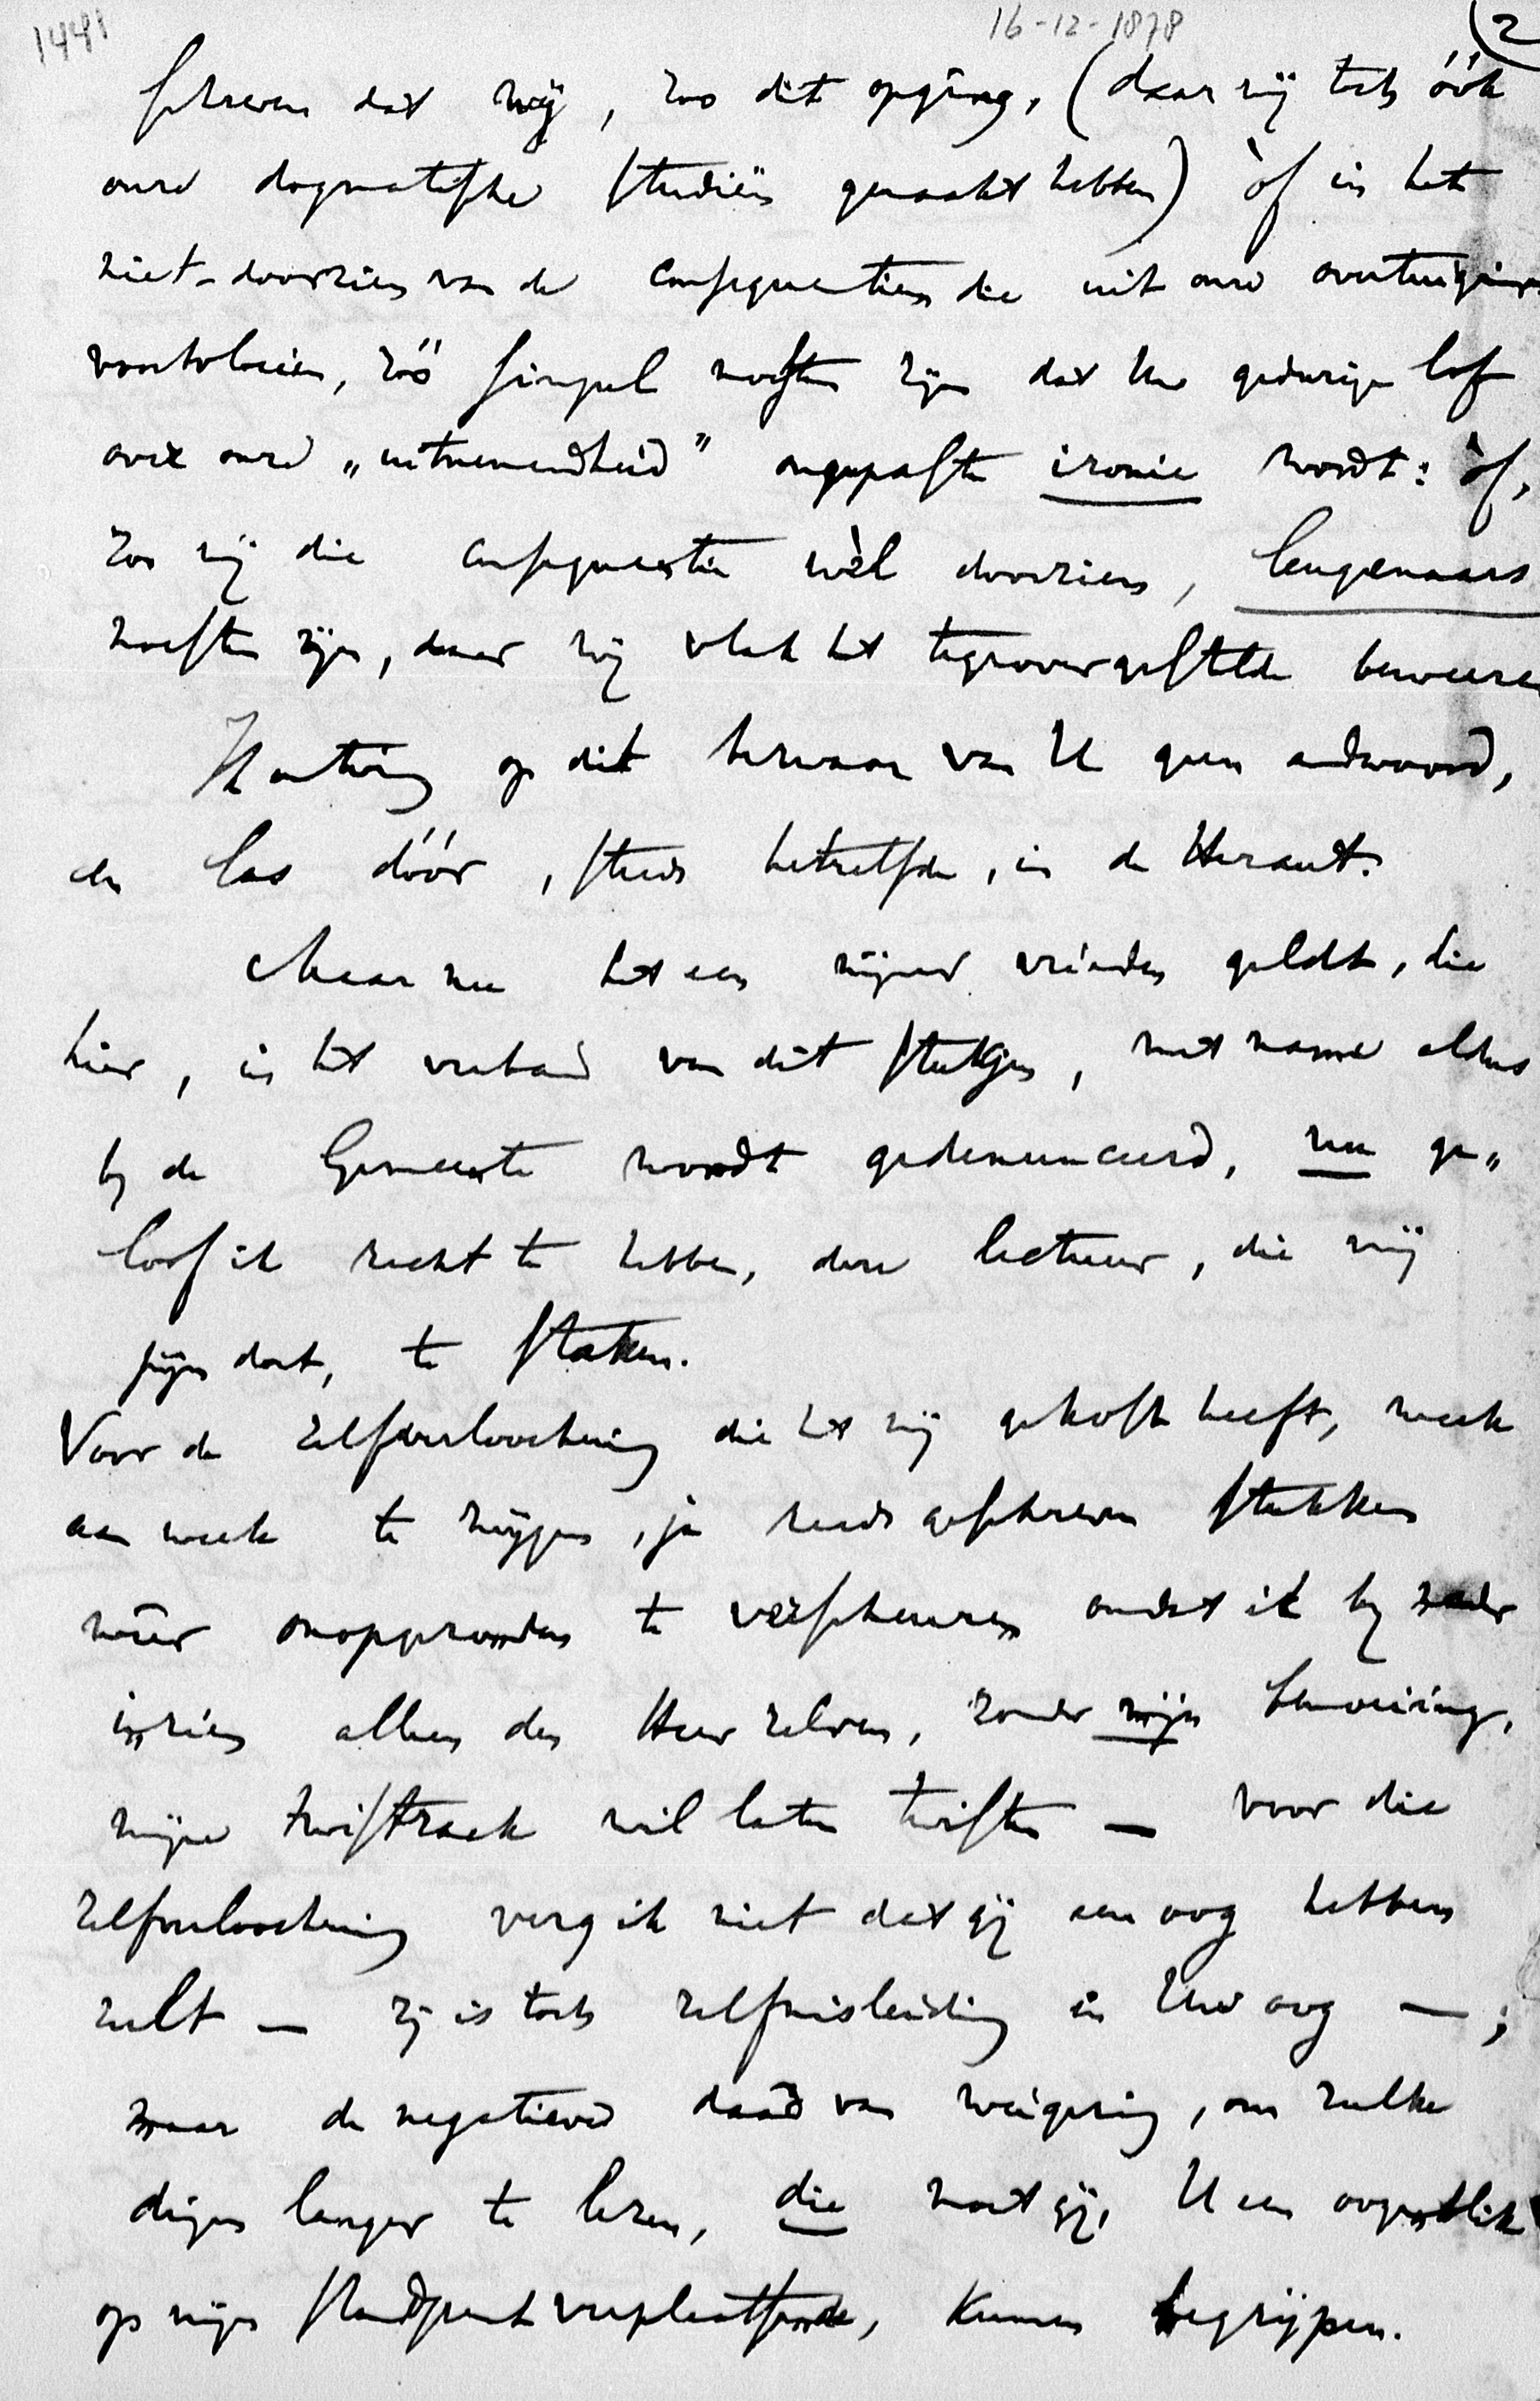 1441
16-12-1878
(2
schreven dat wij, zoo dit opging, (daar wij toch óók
onze dogmatische studiën gemaakt hebben) òf in het
niet-doorzien van de consequentien die uit onze overtuiging
voortvloeien, zóó simpel moesten zijn dat Uw gedurige lof
over onze „uitnemendheid” ongepaste ironie wordt: òf,
zoo wij die consequentie wèl doorzien, leugenaars
moesten zijn, daar wij vlak het tegenovergestelde beweren
Ik ontving op dit schrijven van U geen andwoord,
en las dóór, steeds hetzelfde, in de Heraut.
Maar nu het een mijner vrienden geldt, die
hier, in het verband van dit stukjen, met name aldus
bij de Gemeente wordt gedenunceerd, nu ge„
loof ik recht te hebben, deze lectuur, die mij
pijn doet, te staken.
Voor de zelfverloochening die het mij gekost heeft, week
aan week te zwijgen, ja reeds geschreven stukken
wêer onopgezonden te verscheuren omdat ik bij nader
inzien alleen den Heer zelven, zonder mijn bemoeiing,
mijne twistzaak wil laten twisten — voor die
zelfverloochening verg ik niet dat gij een oog hebben
zult — zij is toch zelfmisleiding in Uw oog —;
maar de negatieve daad van weigering, om zulke
dingen langer te lezen, die moet gij, U een oogenblik
op mijn standpunt verplaatsende, kunnen begrijpen.